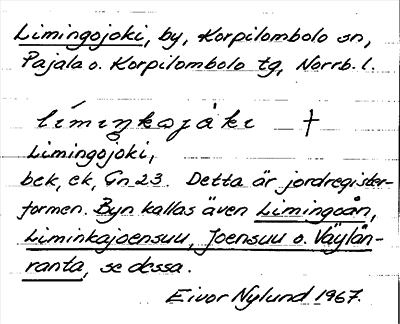 Limingojoki, by, Korpilombolo sn,
Pajala o. Korpilombolo tg, Norrb. l.
límiŋkojȧki †
Limingojoki,
bek, ek, Gn 23. Detta är jordregister-
formen. Byn kallas även Limingoån,
Liminkajoensuu, Joensuu o. Väylän-
ranta, se dessa.
Eivor Nylund 1967.